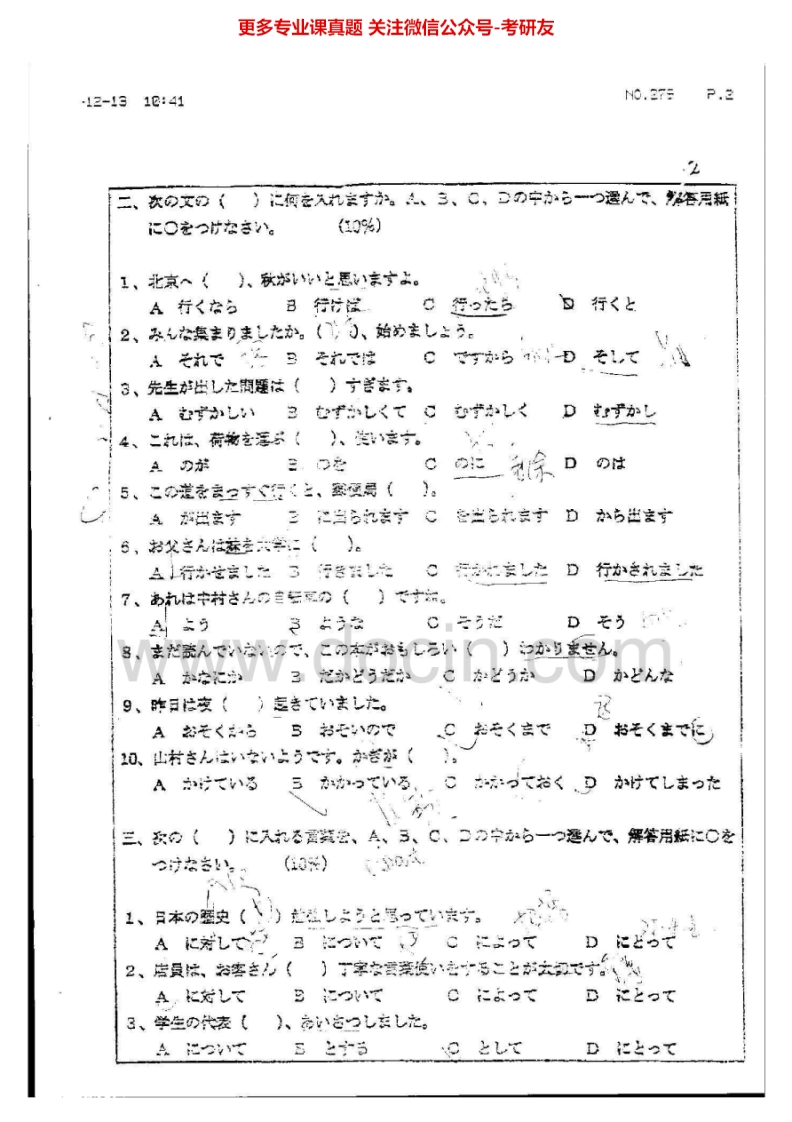 更多专业课真题 关注微信公众号-考研友
-12-13 10:41 NO.275 P.2
2
二、次の文の（ ）に何を入れますか。A、B、C、Dの中から一つ選んで、解答用紙
に○をつけなさい。 (10%)
1、北京へ（ ）、秋がいいと思いますよ。
A 行くなら B 行けば C 行ったら D 行くと
2、みんな集まりましたか。（ ）、始めましょう。
A それで B それでは C ですから D そして
3、先生が出した問題は（ ）すぎます。
A むずかしい B むずかしくて C むずかしく D むずかし
4、これは、荷物を運ぶ（ ）、使います。
A のが B のを C のに D のは
5、この道をまっすぐ行くと、郵便局（ ）。
A が出ます B に出られます C を出られます D から出ます
6、お父さんは妹を大学に（ ）。
A 行かせました B 行きました C 行かれました D 行かされました
7、あれは中村さんの自転車の（ ）ですね。
A よう B ような C そうだ D そう
8、まだ読んでいないので、この本がおもしろい（ ）わかりません。
A かなにか B だかどうだか C かどうか D かどんな
9、昨日は夜（ ）起きていました。
A おそくから B おそいので C おそくまで D おそくまでに
10、山村さんはいないようです。かぎが（ ）。
A かけている B かかっている C かかっておく D かけてしまった
三、次の（ ）に入れる言葉を、A、B、C、Dの中から一つ選んで、解答用紙に○を
つけなさい。 (10%)
1、日本の歴史（ ）勉強しようと思っています。
A に対して B について C によって D にとって
2、店員は、お客さん（ ）丁寧な言葉使いをすることが大切です。
A に対して B について C によって D にとって
3、学生の代表（ ）、あいさつしました。
A について B とする C として D にとって
www.docin.com